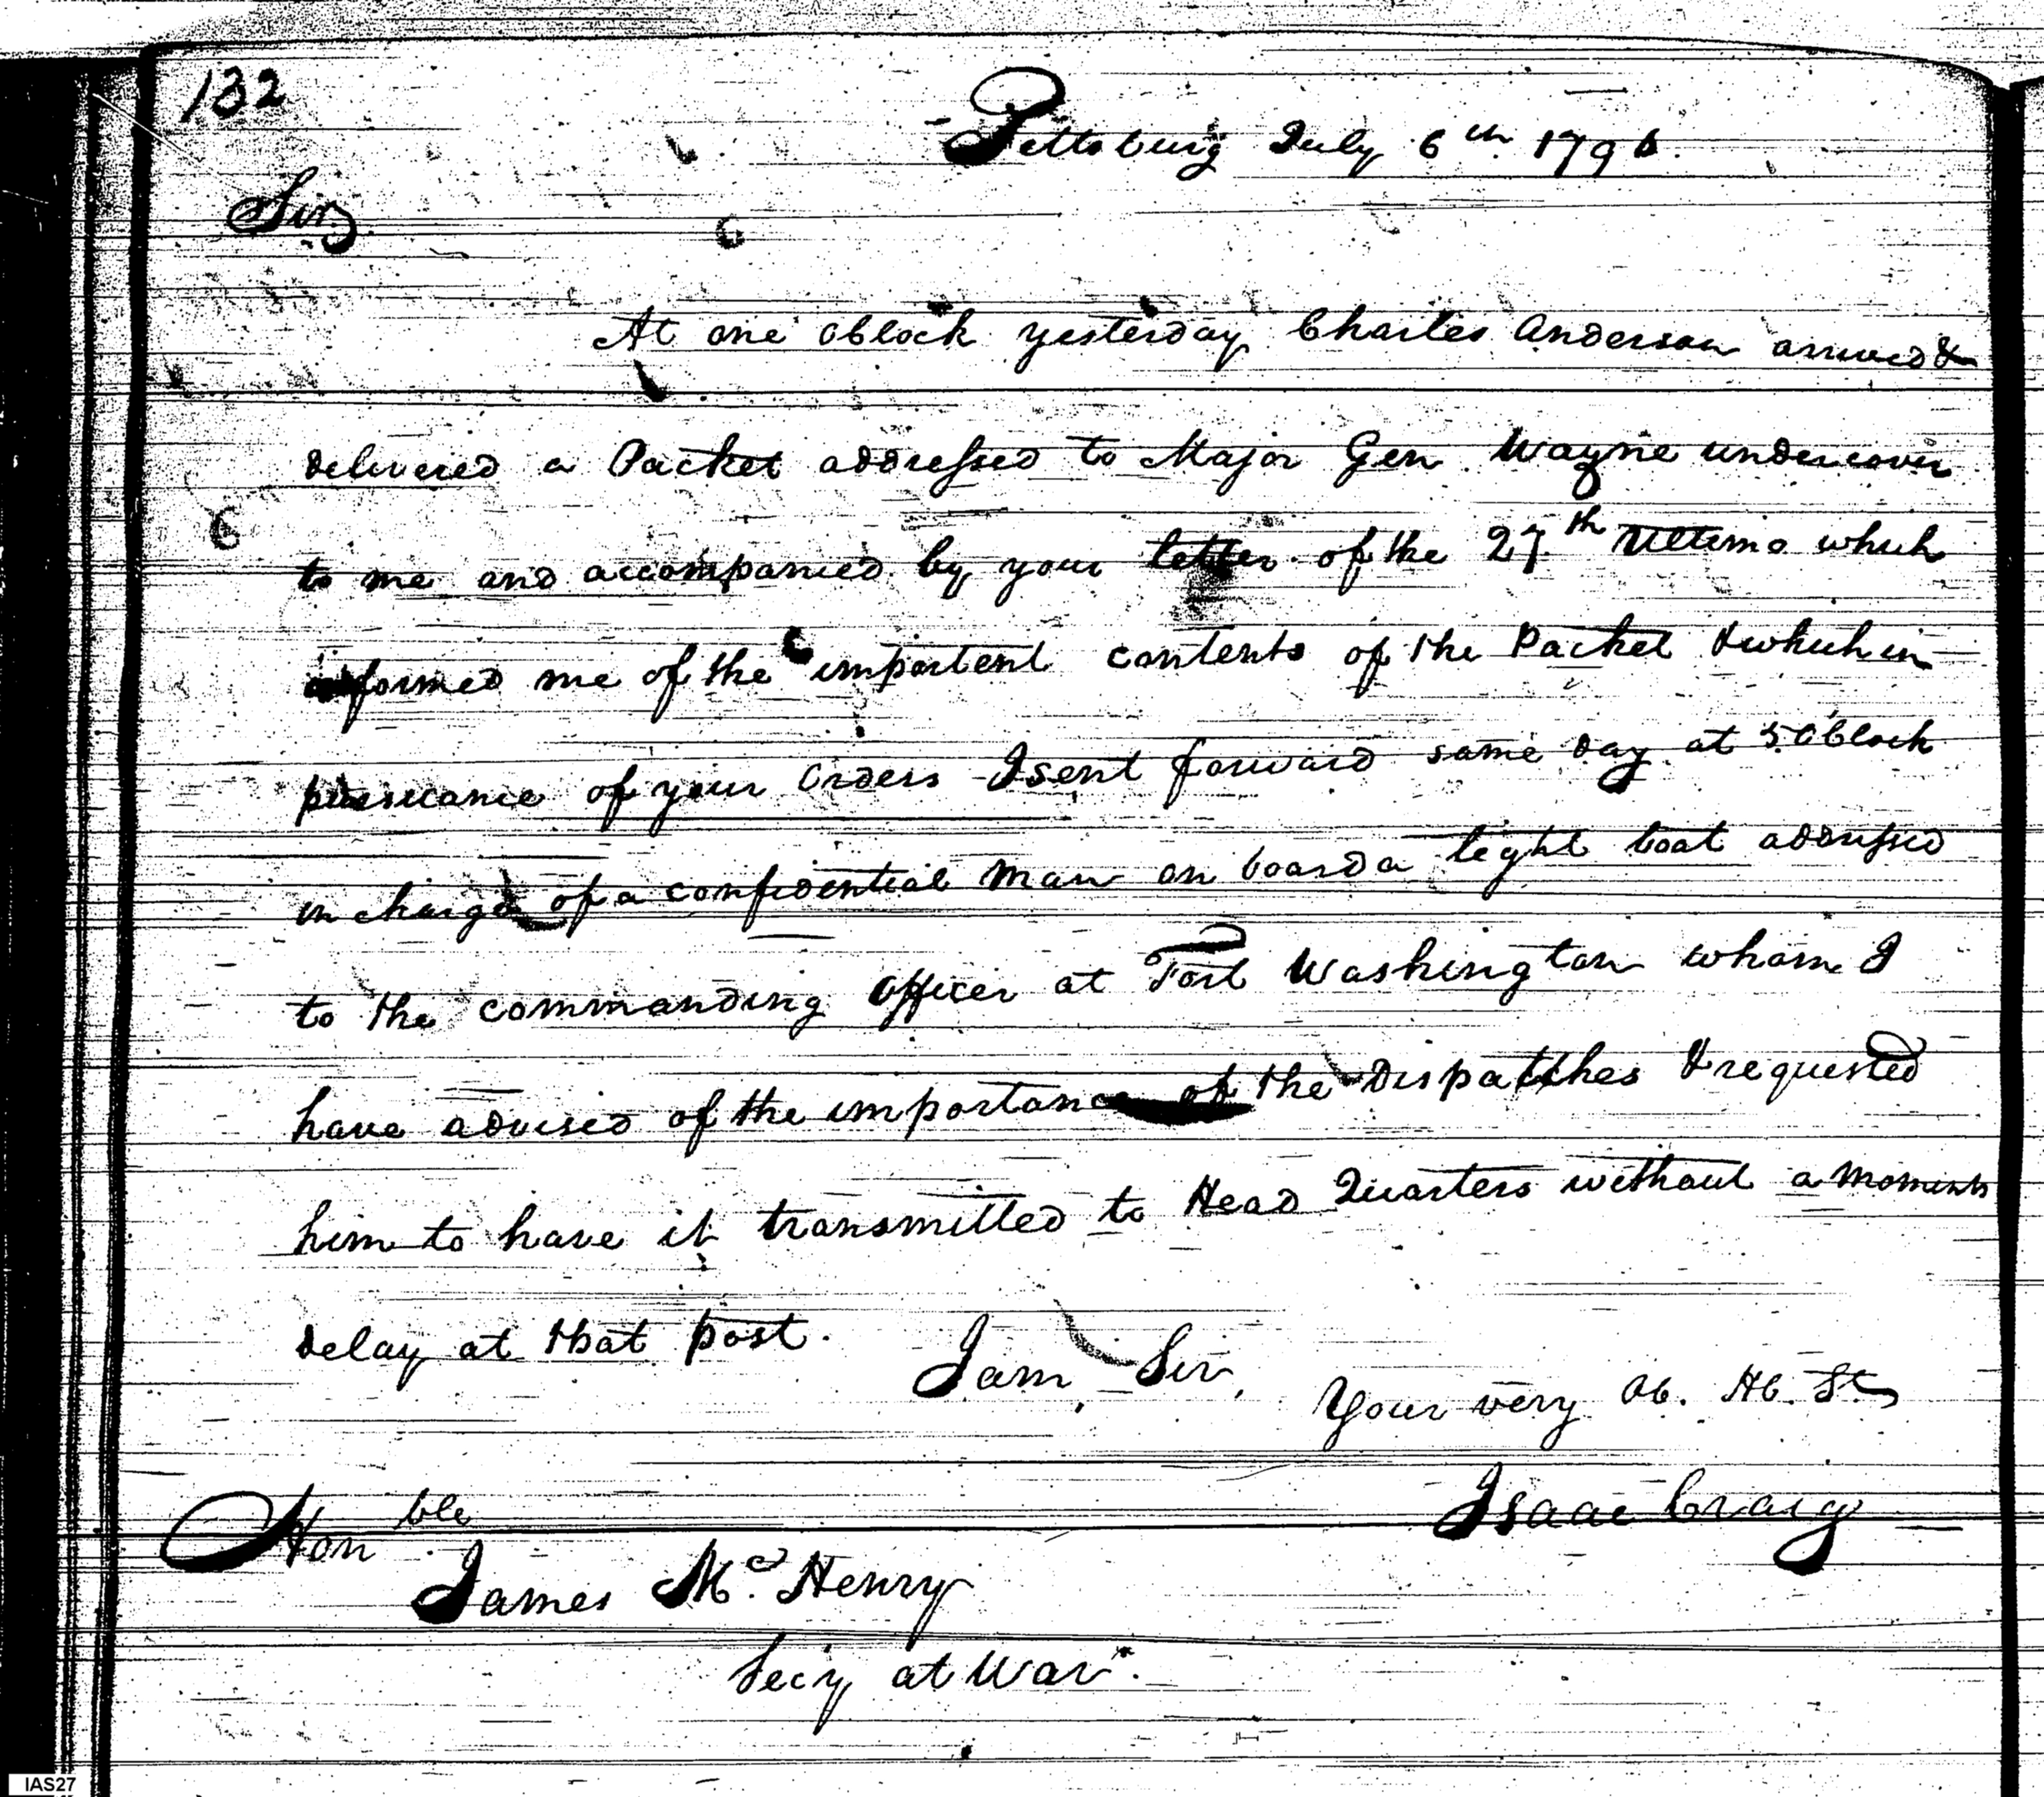 132
Pittsburg July 6th 1796.
Sir
At one oClock yesterday Charles Anderson arrived &
delivered a Packet addressed to Major Gen. Wayne undercover
to me and accompanied by your letter of the 27th Ultimo which
informed me of the important contents of the Packet & which in
pursuance of your Orders I sent forward same day at 5 OClock
in charge of a confidential Man on board a light boat addressed
to the commanding Officer at Fort Washington whom I
have advised of the importance of the Dispatches & requested
him to have it transmitted to Head Quarters without a Moments
delay at that post.
I am Sir,
Your very Ob. Hb. St
Isaac Craig
Honble
James Mc. Henry
Secy at War.
IAS27